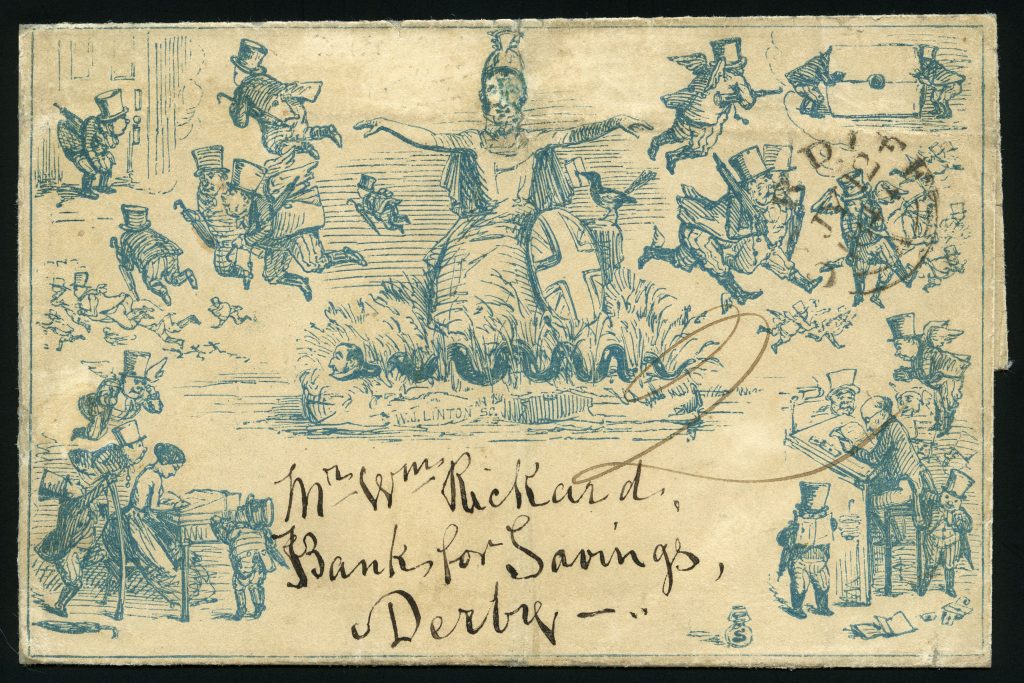 W.J. LINTON Sc.
Mr Wm Rickard,
Bank for Savings,
Derby